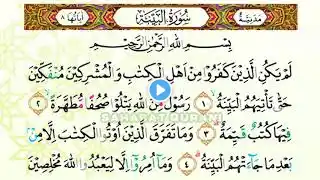 مدنية سورة البينة آياتها ٨
بِسْمِ اللهِ الرَّحْمٰنِ الرَّحِيْمِ
لَمْ يَكُنِ الَّذِيْنَ كَفَرُوْا مِنْ اَهْلِ الْكِتٰبِ وَالْمُشْرِكِيْنَ مُنْفَكِّيْنَ
حَتّٰى تَأْتِيَهُمُ الْبَيِّنَةُ ١ رَسُوْلٌ مِّنَ اللهِ يَتْلُوْا صُحُفًا مُّطَهَّرَةً ٢
SAHAFAT QURANI
فِيْهَا كُتُبٌ قَيِّمَةٌ ٣ وَمَا تَفَرَّقَ الَّذِيْنَ اُوْتُوا الْكِتٰبَ اِلَّا مِنْۢ
بَعْدِ مَا جَآءَتْهُمُ الْبَيِّنَةُ ٤ وَمَآ اُمِرُوْٓا اِلَّا لِيَعْبُدُوا اللهَ مُخْلِصِيْنَ